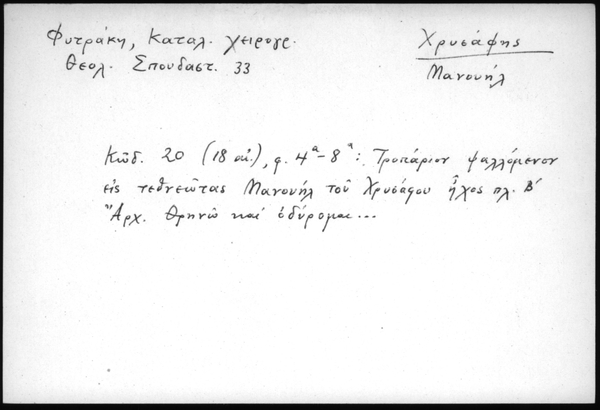 Φυτράκη, Καταλ. χειρογρ.
Θεολ. Σπουδαστ. 33
Χρυσάφης
Μανουήλ
Κῶδ. 20 (18 αἰ.), φ. 4ᵃ-8ᵃ: Τροπάριον ψαλλόμενον
εἰς τεθνεῶτας Μανουήλ τοῦ Χρυσάφου ἦχος πλ. Β′
Ἀρχ. Θρηνῶ καί ὀδύρομαι...